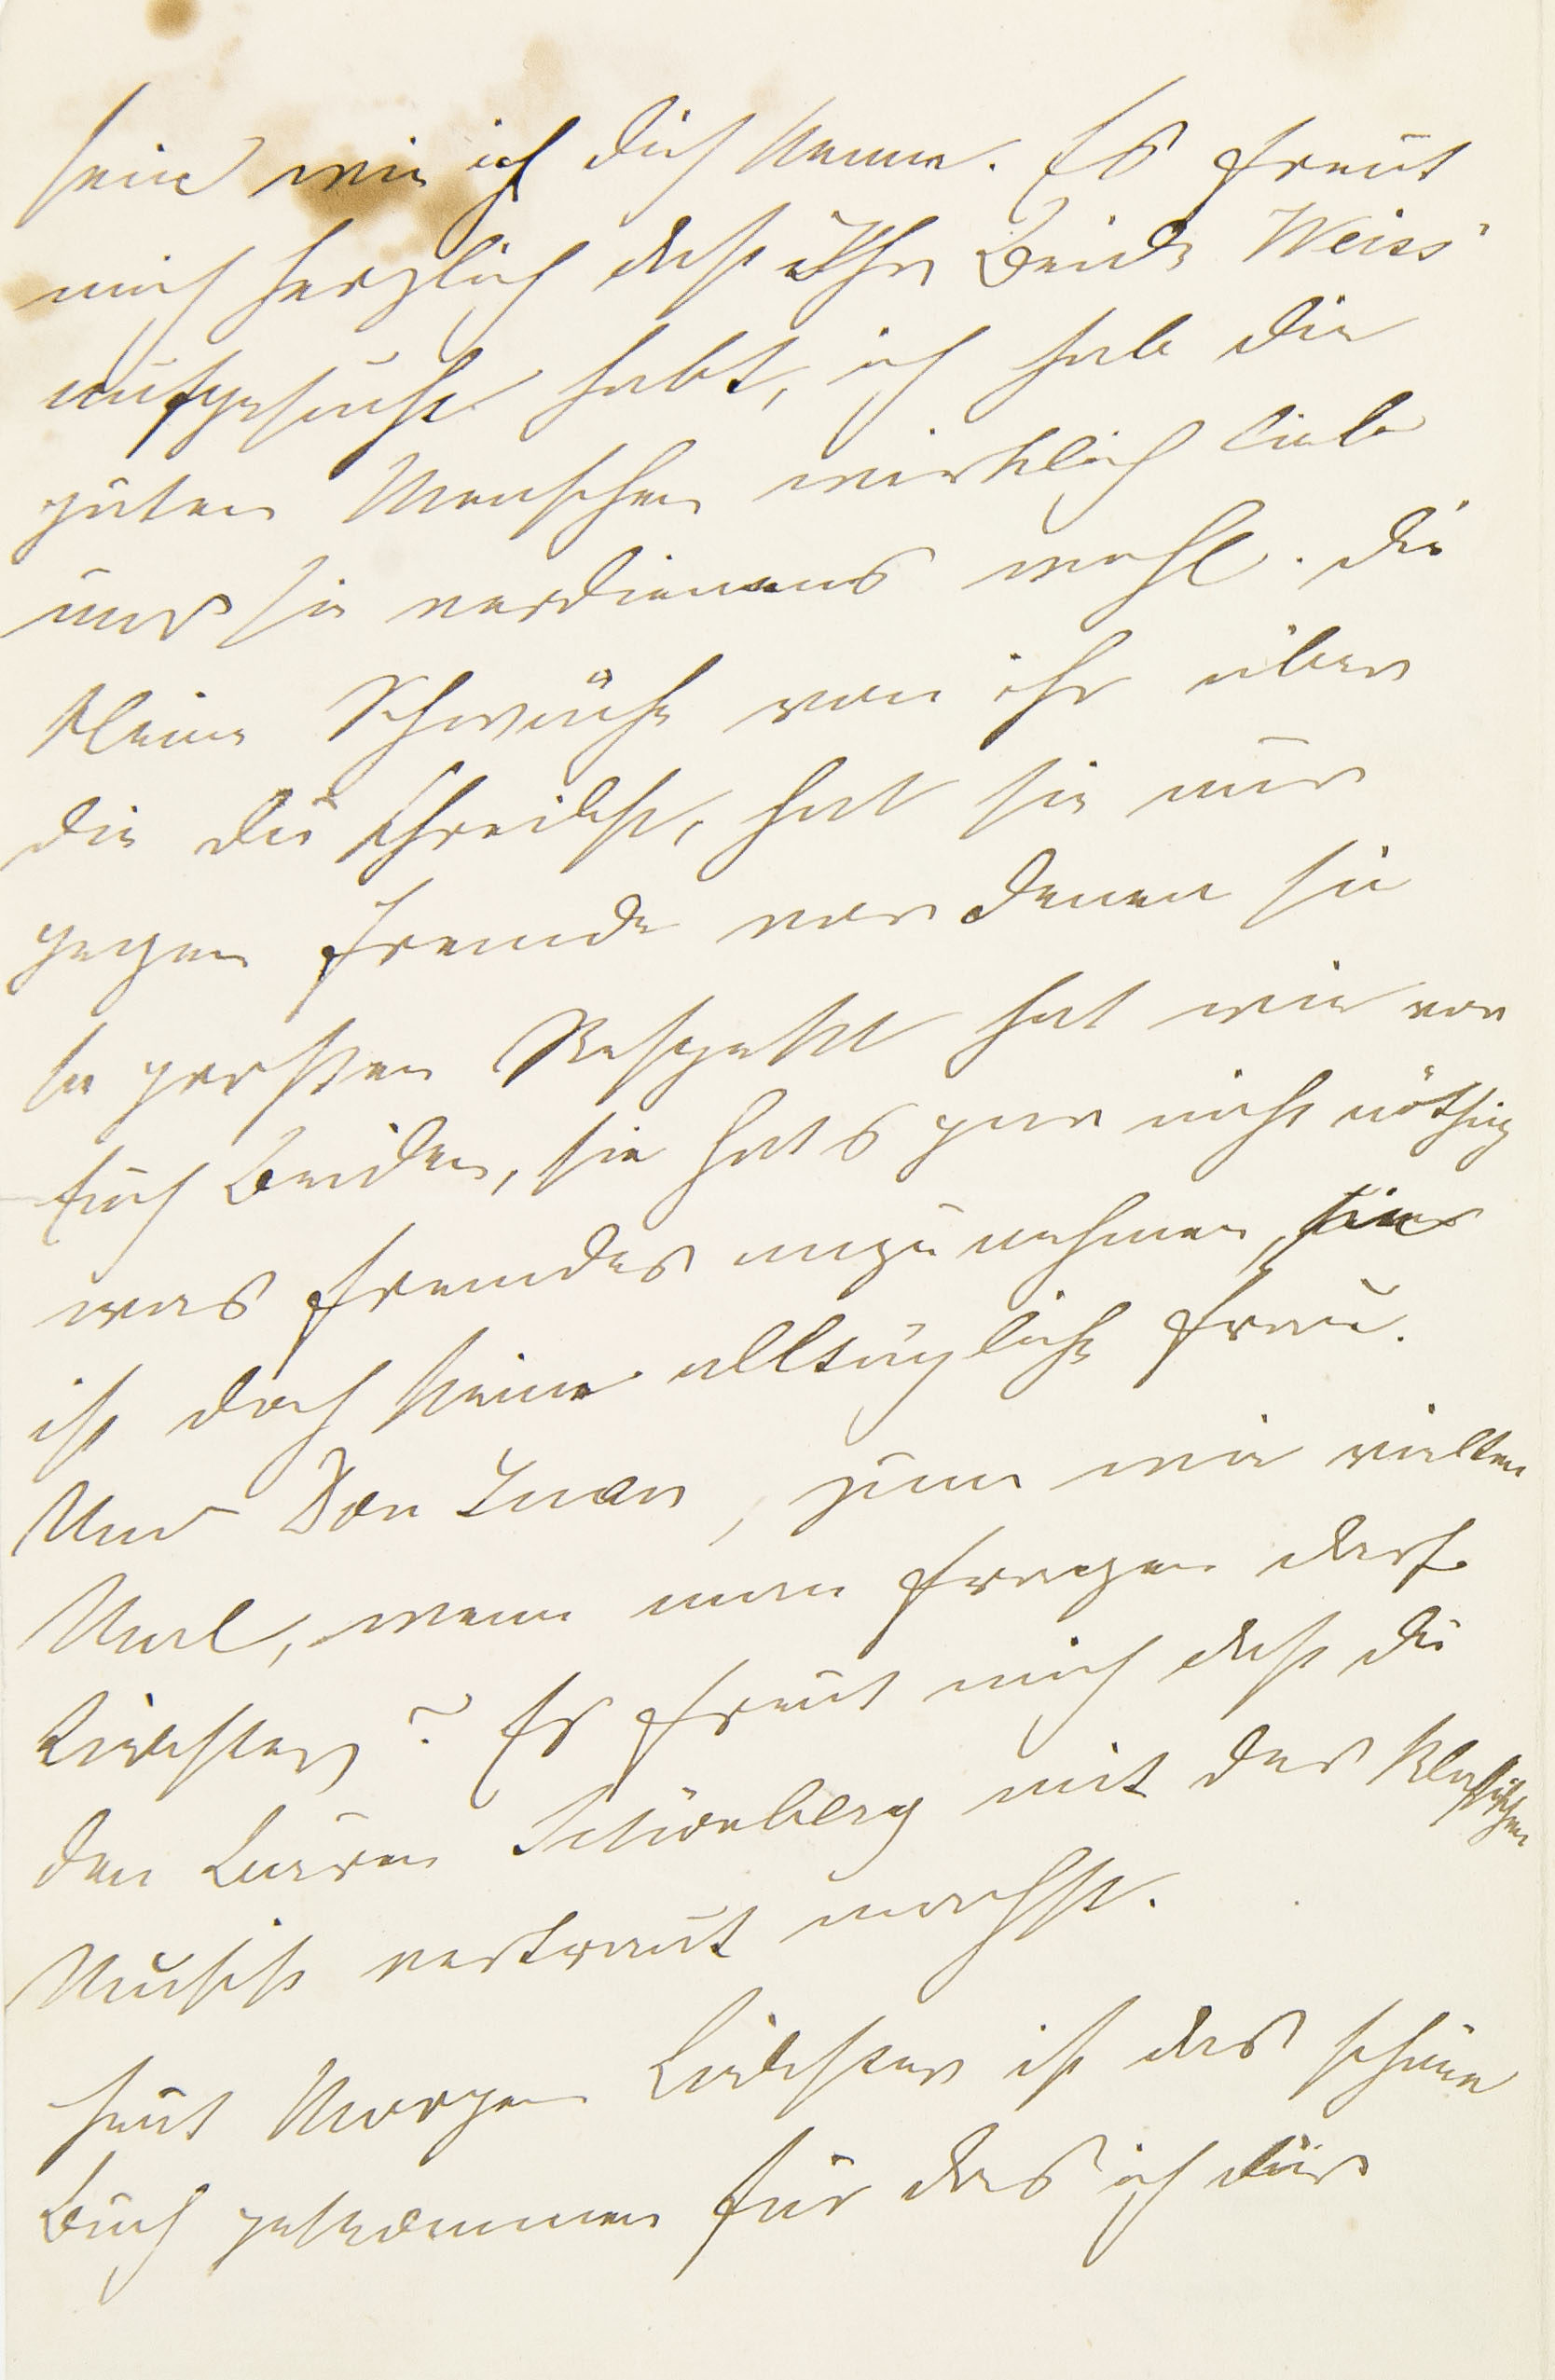 sein wie ich dich kenne. Es freut
mich herzlich daß Ihr Beide Weiss'
aufgesucht habt, ich hab die
guten Menschen wirklich lieb
und sie verdienens wohl. Die
kleine Schwäche von ihr über
die du schreibst, hat sie nur
gegen Fremde vor denen sie
so großen Respekt hat wie vor
Euch Beiden, sie hats gar nicht nöthig
was fremdes anzunehmen, sie
ist doch keine alltägliche Frau.
Und Don Juan, zum wie vielten
Mal, wenn man fragen darf
Liebster? Es freut mich daß du
den Baron Schönberg mit der klaßischen
Musik vertraut machst.
Heut Morgen Liebster ist das schöne
Buch gekommen für das ich dir